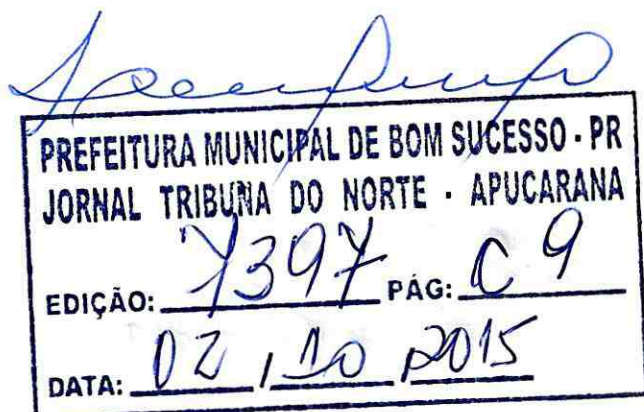 PREFEITURA MUNICIPAL DE BOM SUCESSO - PR
JORNAL TRIBUNA DO NORTE - APUCARANA
EDIÇÃO: 7397 PÁG: C 9
DATA: 02 / 10 / 2015